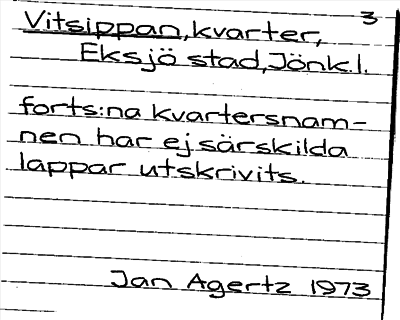 3
Vitsippan, kvarter,
Eksjö stad, Jönk.l.
forts:na kvartersnam-
nen har ej särskilda
lappar utskrivits.
Jan Agertz 1973